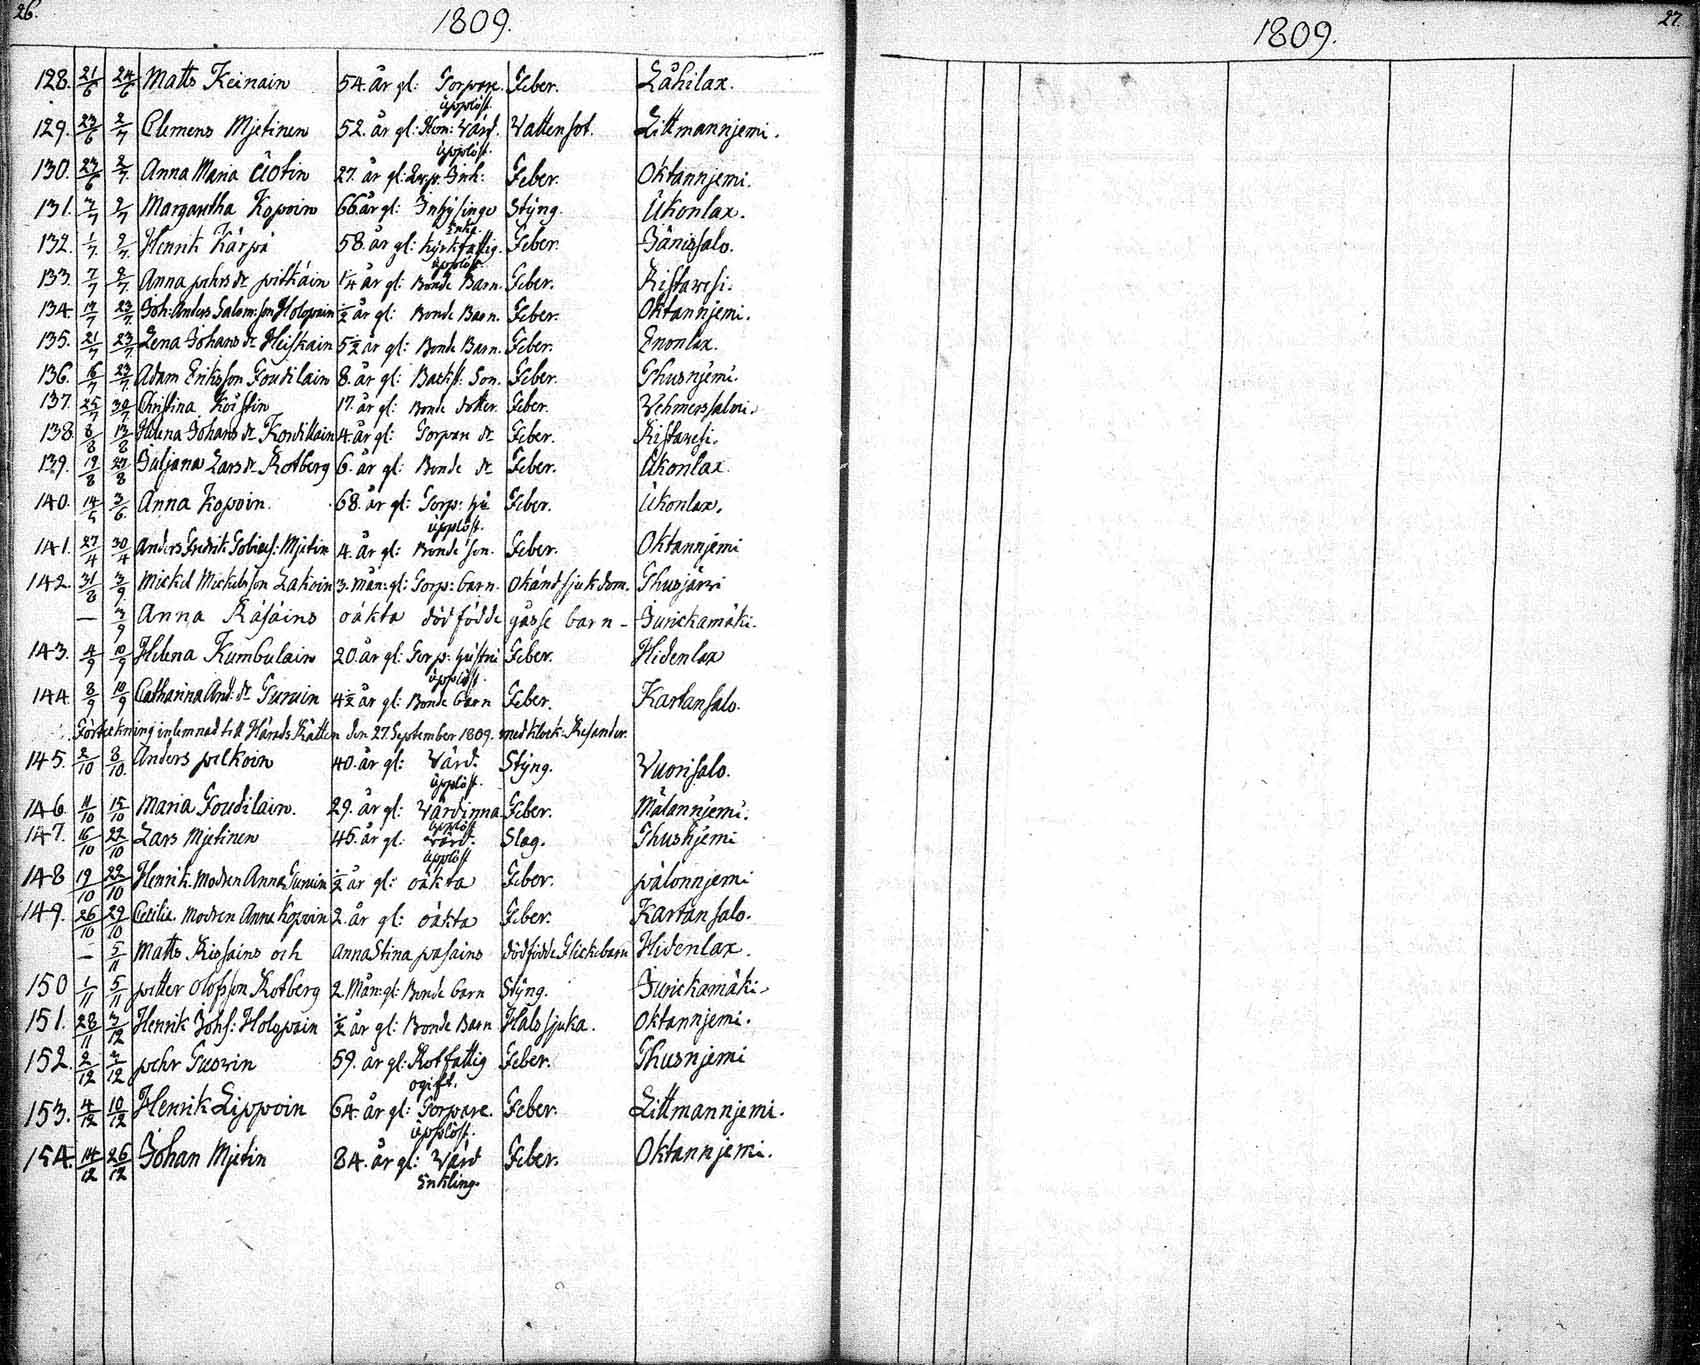 26.
1809.
128. 21/6 24/6 Matts Keinain 54. år gl: Torpare. Feber. Låhilax.
upplöst.
129. 23/6 2/7 Clemens Mjetinen 52. år gl: Wärd. Vattensot. Littmannjemi.
upplöst.
130. 27/6 2/7 Anna Maria 27. år gl: Inh: Feber. Oktannjemi.
131. 3/7 9/7 Margaretha Kopoin 66. år gl: Inhÿsinge Stÿng. Ukonlax.
Enka
132. 1/7 9/7 Henrik Kärpä 58. år gl: kÿrkfattig. Feber. Jänissalo.
upplöst.
133. 7/7 9/7 Anna pehrs dr pitkäin 1/4 år gl: Bonde Barn. Feber. Ristavesi.
134 17/7 23/7 Joh: Anders Salom: son Holopain 1/2 år gl: Bonde Barn. Feber. Oktannjemi.
135. 21/7 23/7 Lena Johans dr Heiskain 5 1/2 år gl: Bonde Barn. Feber. Enonlax.
136. 16/7 23/7 Adam Eriksson Toudilain 8. år gl: Backst: Son. Feber. Thusnjemi.
137. 25/7 30/7 Christina Koistin 17. år gl: Bonde dotter. Feber. Vehmersalmi.
138. 8/8 13/8 Johans dr Kordilain 4. år gl: Torpare dr Feber. Ristavesi.
139. 19/8 27/8 Juljana Lars dr Rotberg 6. år gl: Bonde dr Feber. Ukonlax.
140. 14/5 3/6. Anna Kopoin. 68. år gl: Torp: hu Feber. Ukonlax.
upplöst.
141. 27/4 30/4 Anders Fredrik Tobiæs: Mjetin 4. år gl: Bonde son. Feber. Oktannjemi
142. 31/8 3/9. Mickel Mickelsson Lakoin 3. mån: gl: Torp: barn. okänd sjukdom. Thusjärvi
— 3/9 Anna Räsäins oäkta död födde gåsse barn – Jurickamäki.
143. 4/9 10/9 Helena Kumbulain 20. år gl: Torp: hustru Feber. Hidenlax
upplöst.
144. 8/9 10/9 Catharina And: dr Turuin 4 1/2 år gl: Bonde barn Feber. Kartansalo.
Förtekning inlemnad till Härads Rätten den 27. September 1809. med Klock: Resander.
145. 2/10 8/10. Anders pelkoin 40. år gl: Wärd. Stÿng. Vuorisalo.
upplöst.
146. 11/10 15/10 Maria Toudilain. 29. år gl: Wärdinna Feber. Mälannjemi.
upplöst
147. 16/10 22/10 Lars Mjetinen 45. år gl: Wärd. Slag. Thusnjemi
upplöst
148 19/10 22/10 Henrik. Modren Anna Turuin 1/2 år gl: oäkta Feber. pålonnjemi
149. 26/10 29/10 Cecilia. Modren Anna Kopoin 2. år gl: oäkta Feber. Kartansalo.
– 5/11 Matts Rissains och Anna Stina pasains dödfödde Flickebarn Hidenlax.
150 1/11 5/11 petter Olofsson Rotberg 2. Mån: gl: Bonde barn Stÿng. Jurickamäki.
151. 28/11 3/12 Henrik Johs: Holopain 1/2 år gl: Bonde Barn Halssjuka. Oktannjemi.
152. 2/12 3/12 pehr 59. år gl: Rotfattig Feber. Thusnjemi
ogift.
153. 4/12 10/12 Henrik Lippoin 64. år gl: Torpare. Feber. Littmannjemi.
upplöst.
154. 14/12 26/12 Johan Mjetin 84. år gl: Wärd Feber. Oktannjemi.
Enkling.
1809.
27.